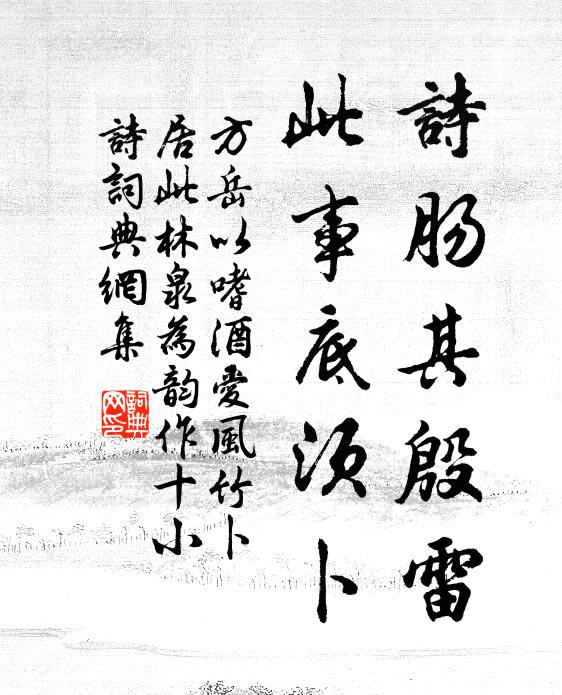 詩腸其殷雷
此事底須卜
方岳以嗜酒愛風竹卜
居此林泉為韵作十小
詩詞典網集
詞典網印